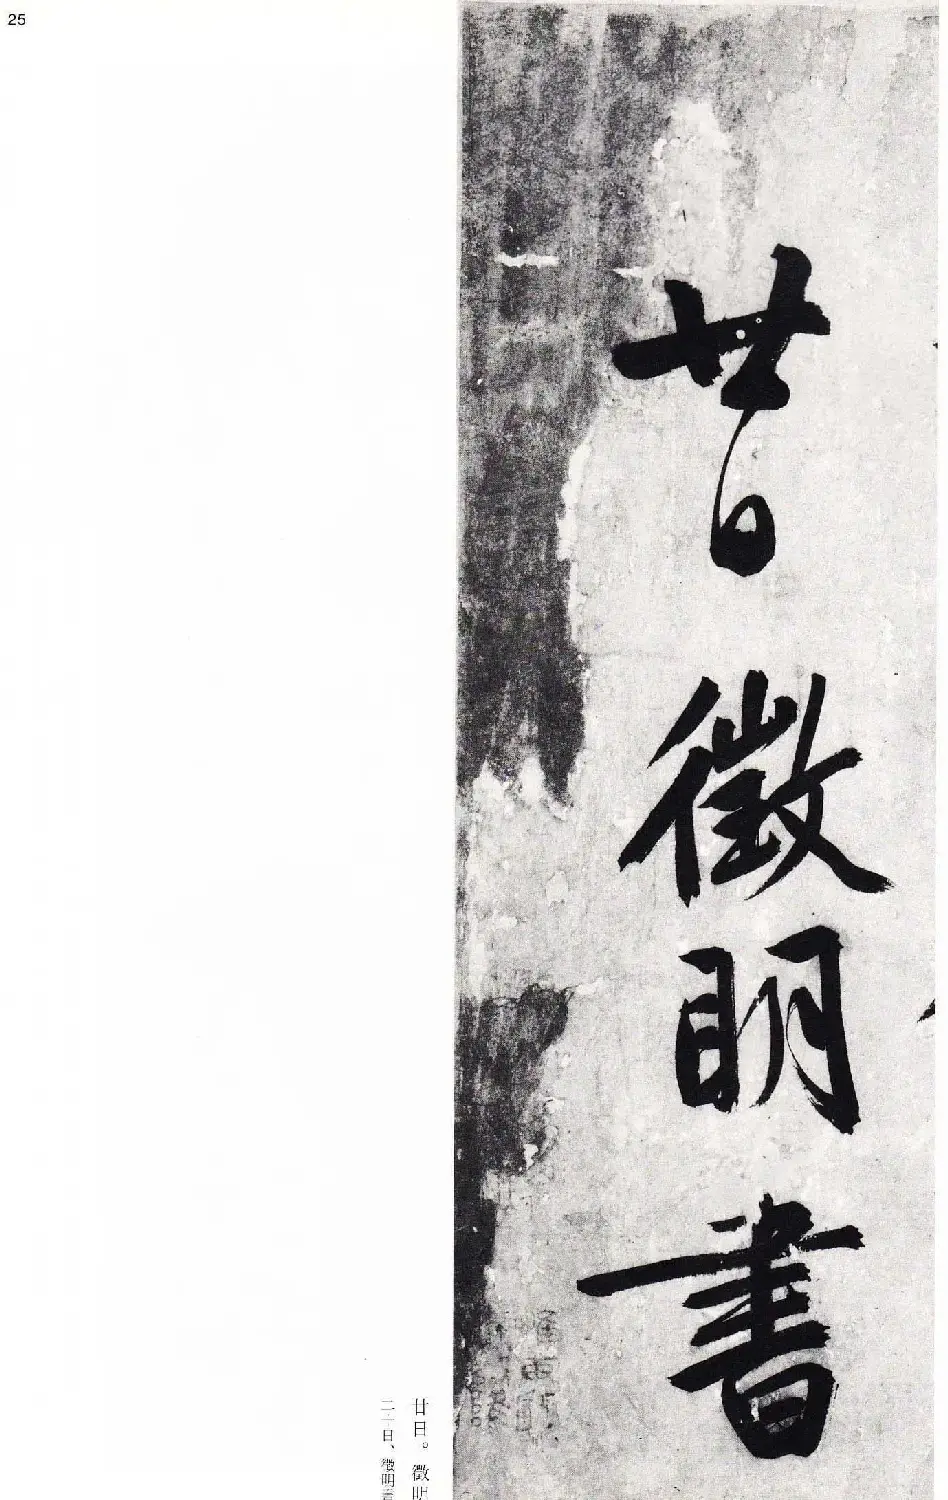 25
廿日徵明書
廿日。徵明
二十日、徵明書